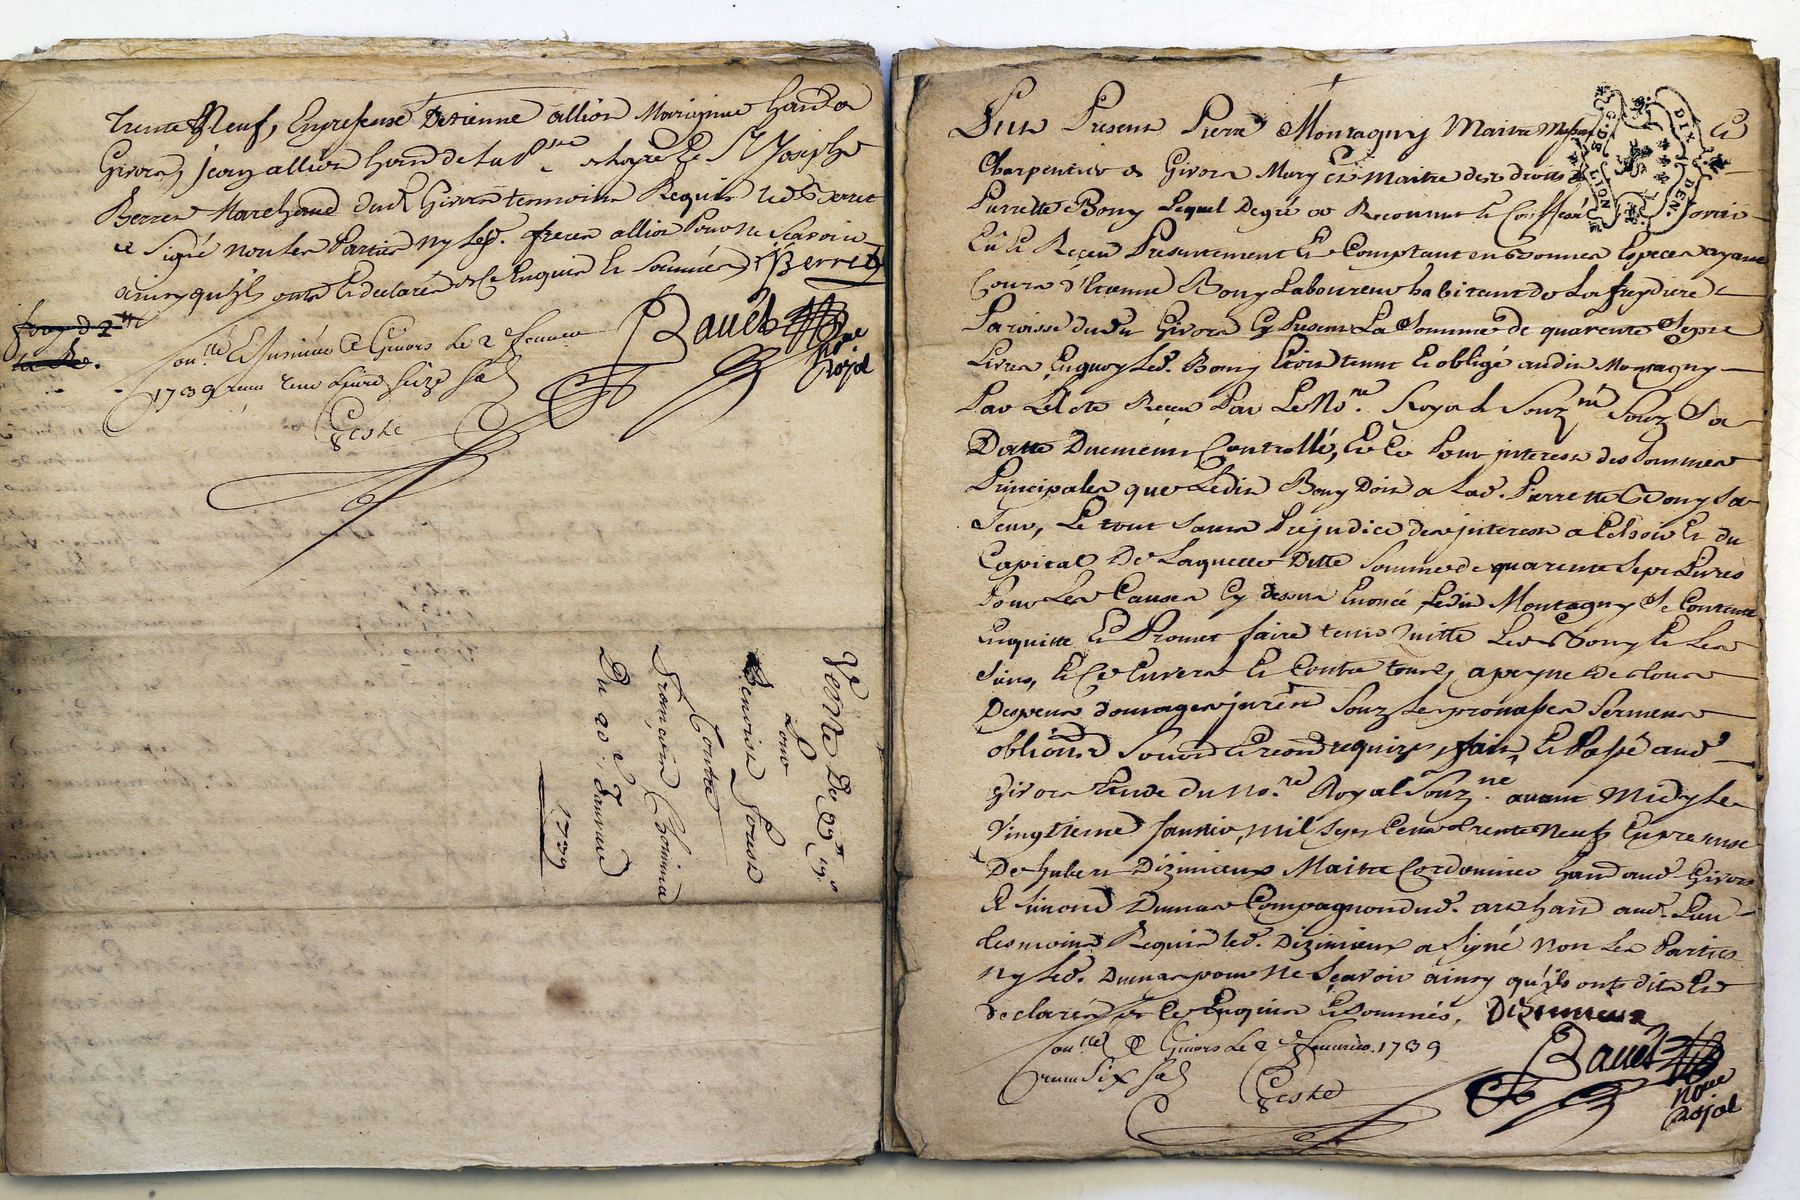 trente Neuf, En presence D'etienne allion Marinier hant a
Givors, jean allion hant de lad. St Joseph
Berret Marchand dud. Givors temoins Requis led. Berret
a signé non les Parties ny led. allion Pour ne Scavoir
ainsy qu'ils ont declarés de ce Enquis et Sommés Berret
Bauet
Nore
Royal
a Givors Le 2
1739 livre seize
Geste
Vente De
Pour
Benoist
Contre
François
Du 20e Janvier
1739
Fut Present Pierre Montagny Maitre et
Charpentier de Givors Mary et Maitre des droits de
Pierrette Bony Lequel Degré a Reconnut et Confessé avoir
Eû et Receu Presentement et Comptant en bonnes Especes ayant
Cours d'Etienne Bony Laboureur habitant de La freydiere
Paroisse dud. Givors Cy Present La Somme de quarente Sept
Livres Enquoy led. Bony Etoit tenut et obligé audit Montagny
Par acte Receu Par Le Nore. Royal Souzne. Souz Sa
Datte Duement Controllé, et ce Pour interest des sommes
Principales que Ledit Bony Doit a lad. Pierrette Bony Sa
Seur, Le tout Sans Prejudice des interest a Echoir et du
Capital De Laquelle Ditte Somme de quarente Sept Livres
Pour Les Causes Cy dessus Enoncé Ledit Montagny Se Contente
Enquitte et Promet faire tenir Quitte Led. Bony et Les
Siens, et Ce Envers et Contre tous, a peyne De tous
Despens domages
fait et Passé aud.
Givors Etude du Nore. Royal Souzne. avant Midy Le
Vingtieme Janvier, mil Sept Cent trente Neuf En presence
De hubert Dizimieux Maitre Cordonnier hant aud. Givors
Et Simond Dumas Compagnon dud. art hant aud. Lieu
temoins Requis led. Dizimieux a signé Non Les Parties
Ny led. Dumas pour Ne Scavoir ainsy qu'ils ont dit et
declarés de Ce Enquis et Sommés, Dizimieux
a Givors Le 2e feuvrier 1739
Six
Geste
Bauet
Nore
Royal